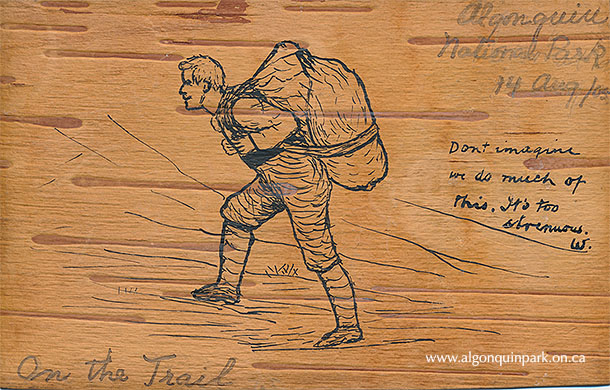 Algonquin
National Park
14 Aug
Don't imagine
we do much of
this. It's too
strenuous.
W.
www.algonquinpark.on.ca
On the Trail